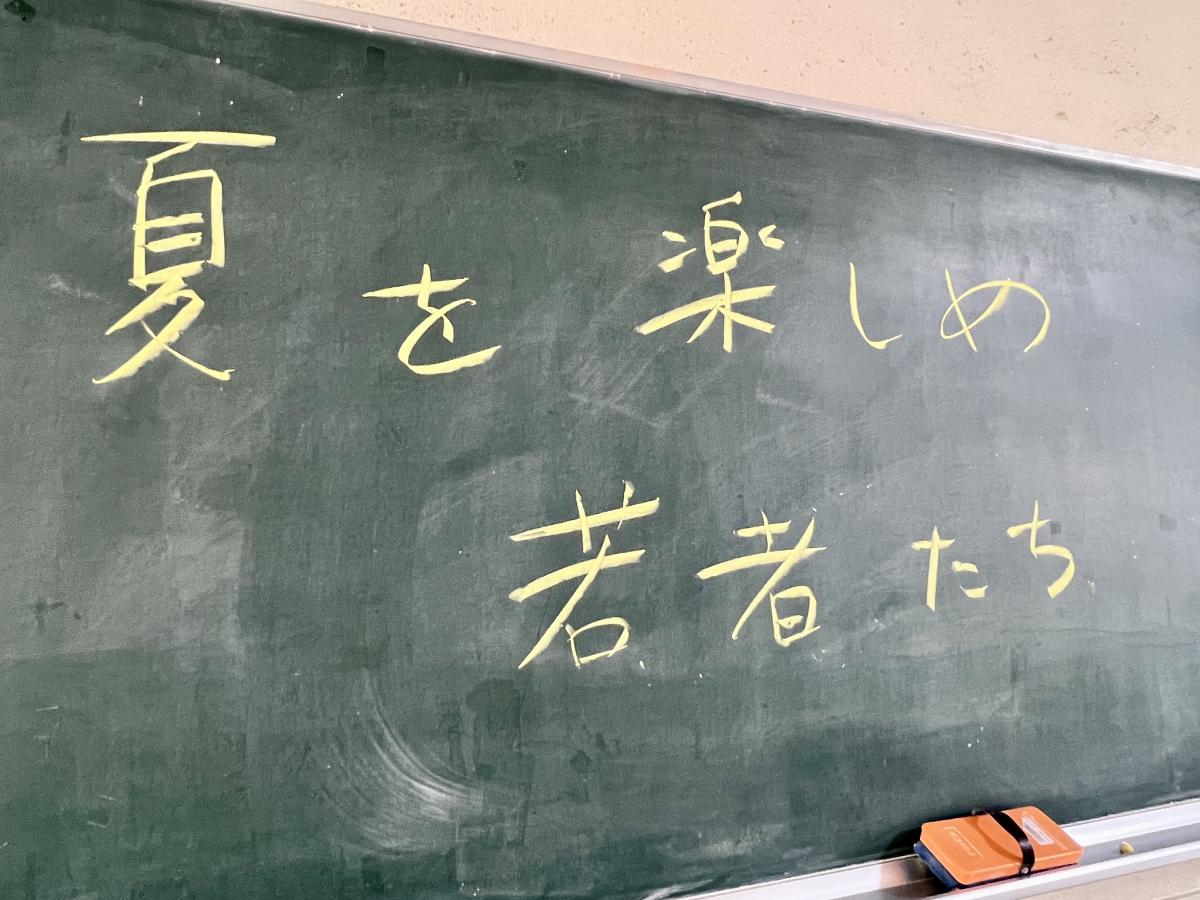 夏を楽しめ
若者たち